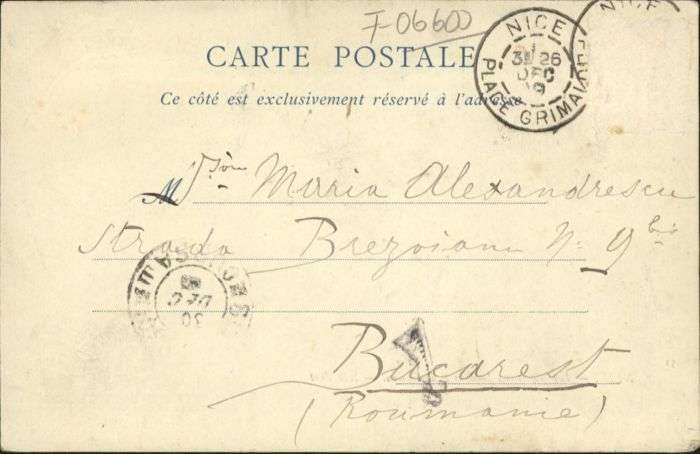 F-06600
CARTE POSTALE
Ce côté est exclusivement réservé à l'adresse
NICE
3E 26
DEC
PLACE GRIMALDI
NICE
M
Maria Alexandrescu
Strada Brezoianu Nº 9 bis
30
DEC
Bucarest
(Roumanie)